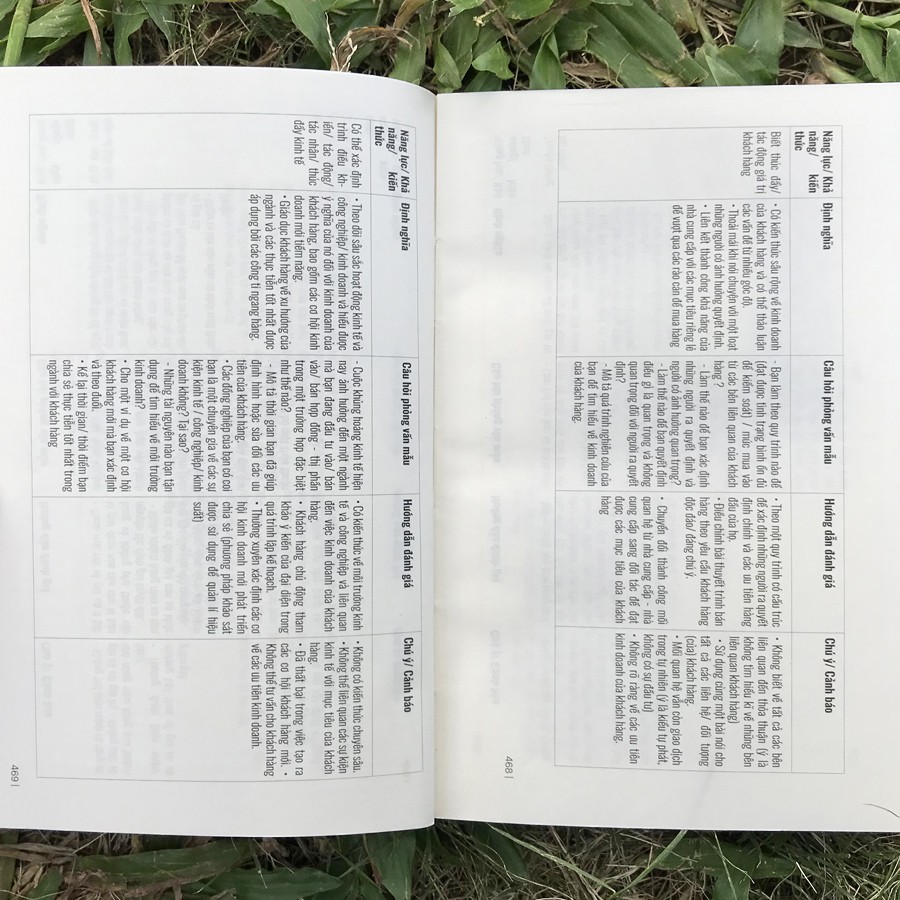 Năng lực/ Khả
năng/ kiến
thức
Định nghĩa
Câu hỏi phỏng vấn mẫu
Hướng dẫn đánh giá
Chú ý/ Cảnh báo
Biết thúc đẩy/
tác động giá trị
khách hàng
• Có kiến thức sâu rộng về kinh doanh
của khách hàng và có thể thảo luận
các vấn đề từ nhiều góc độ.
• Thoải mái khi nói chuyện với một loạt
những người có ảnh hưởng quyết định.
• Liên kết thành công khả năng của
nhà cung cấp với các mục tiêu riêng lẻ
để vượt qua các rào cản để mua hàng
- Bạn làm theo quy trình nào để
(đạt được tình trạng bình ổn đủ
để kiểm soát) / mức mua vào
từ các bên liên quan của khách
hàng ?
- Làm thế nào để bạn xác định
những người ra quyết định và
người có ảnh hưởng quan trọng?
- Làm thế nào để bạn quyết định
điều gì là quan trọng và không
quan trọng đối với người ra quyết
định?
- Mô tả quá trình nghiên cứu của
bạn để tìm hiểu về kinh doanh
của khách hàng.
• Theo một quy trình có cấu trúc
để xác định những người ra quyết
định chính và các ưu tiên hàng
đầu của họ.
• Điều chỉnh bài thuyết trình bán
hàng theo yêu cầu khách hàng
độc đáo/ đáng chú ý.
• Chuyển đổi thành công mối
quan hệ từ nhà cung cấp - nhà
cung cấp sang đối tác để đạt
được các mục tiêu của khách
hàng
• Không biết về tất cả các bên
liên quan đến thỏa thuận (ý là
không tìm hiểu kĩ về những bên
liên quan khách hàng)
• Sử dụng cùng một bài nói cho
tất cả các liên hệ/ đối tượng
(của) khách hàng.
• Mối quan hệ vẫn còn giao dịch
trong tự nhiên (ý là kiểu tự phát,
không có sự đầu tư)
• Không rõ ràng về các ưu tiên
kinh doanh của khách hàng.
468|
Năng lực/ Khả
năng/ kiến
thức
Định nghĩa
Câu hỏi phỏng vấn mẫu
Hướng dẫn đánh giá
Chú ý/ Cảnh báo
Có thể xác định
trình điều kh-
iển/ tác động/
tác nhân/ thúc
đẩy kinh tế
• Theo dõi sâu sắc hoạt động kinh tế và
công nghiệp/ kinh doanh và hiểu được
ý nghĩa của nó đối với kinh doanh của
khách hàng, bao gồm các cơ hội kinh
doanh mới tiềm năng.
• Giáo dục khách hàng về xu hướng của
ngành và các thực tiễn tốt nhất được
áp dụng bởi các công ti ngang hàng.
- Cuộc khủng hoảng kinh tế hiện
nay ảnh hưởng đến một ngành
mà bạn đang đầu tư vào/ bán
vào/ bán hợp đồng - thị phần
trong một trường hợp đặc biệt
như thế nào?
- Mô tả thời gian bạn đã giúp
định hình hoặc sửa đổi các ưu
tiên của khách hàng.
• Các đồng nghiệp của bạn có coi
bạn là một chuyên gia về các sự
kiện kinh tế / công nghiệp/ kinh
doanh không? Tại sao?
- Những tài nguyên nào bạn tận
dụng để tìm hiểu về môi trường
kinh doanh?
• Cho một ví dụ về một cơ hội
khách hàng mới mà bạn xác định
và theo đuổi.
• Kể lại thời gian/ thời điểm bạn
chia sẻ thực tiễn tốt nhất trong
ngành với khách hàng
• Có kiến thức về môi trường kinh
tế và công nghiệp và liên quan
đến việc kinh doanh của khách
hàng.
• Khách hàng chủ động tham
khảo ý kiến của đại diện trong
quá trình lập kế hoạch.
• Thường xuyên xác định các cơ
hội kinh doanh mới phát triển
chia sẻ (phương pháp khảo sát
được sử dụng để quản lí hiệu
suất)
• Không có kiến thức chuyên sâu.
• Không thể liên quan các sự kiện
kinh tế với mục tiêu của khách
hàng.
• Đã thất bại trong việc tạo ra
các cơ hội khách hàng mới. •
Không thể tư vấn cho khách hàng
về các ưu tiên kinh doanh.
469|